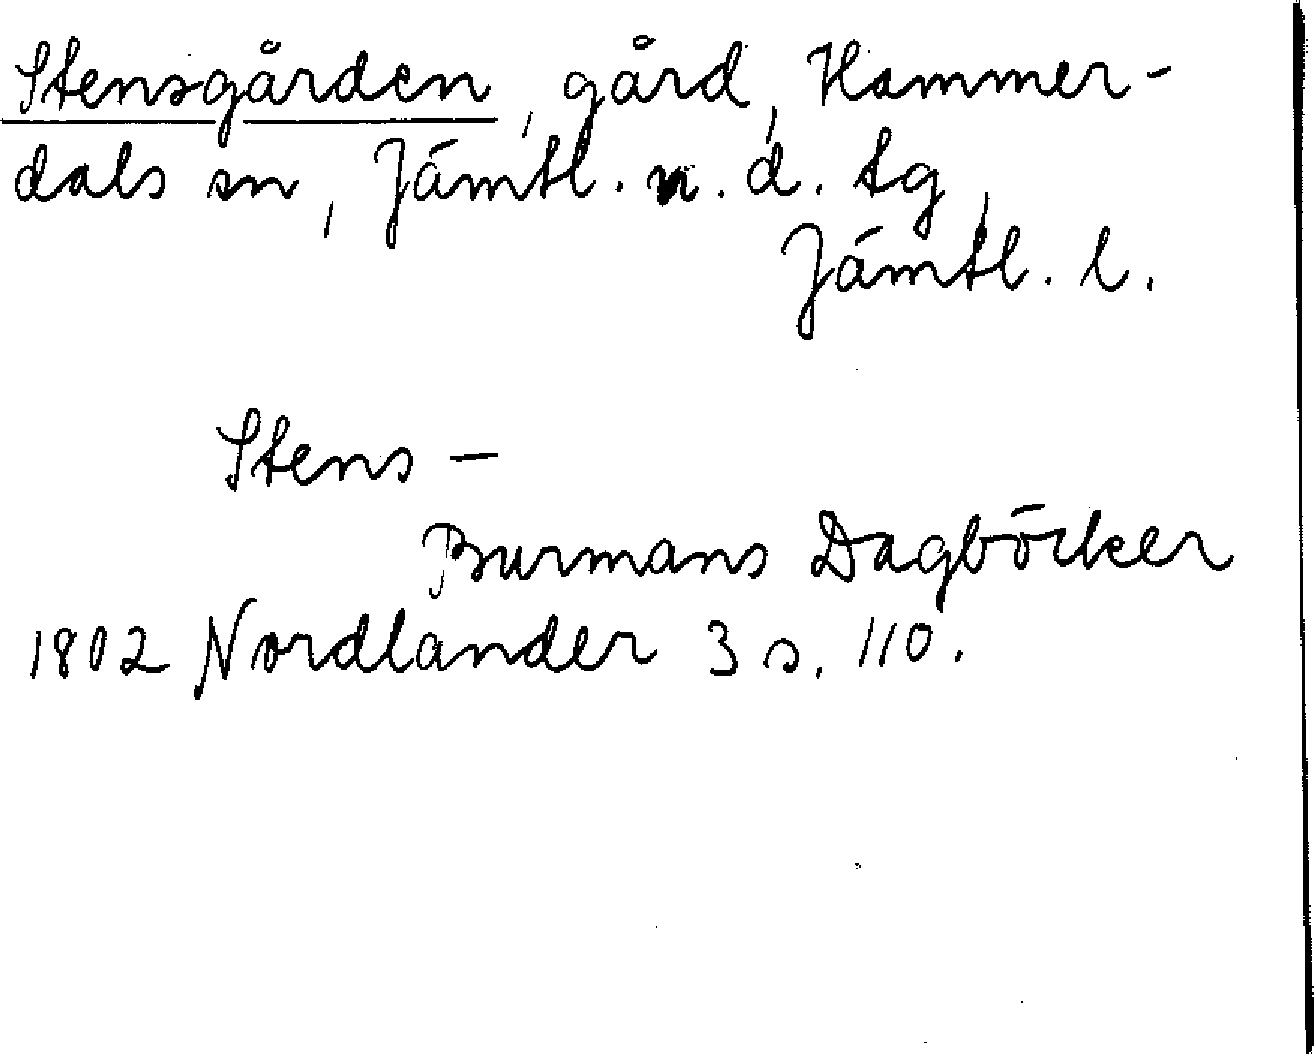 Stensgården, gård, Hammer-
dals sn, Jämtl. n. d. tg,
Jämtl. l.
Stens -
Burmans Dagböcker
1802 Nordlander 3 s. 110.